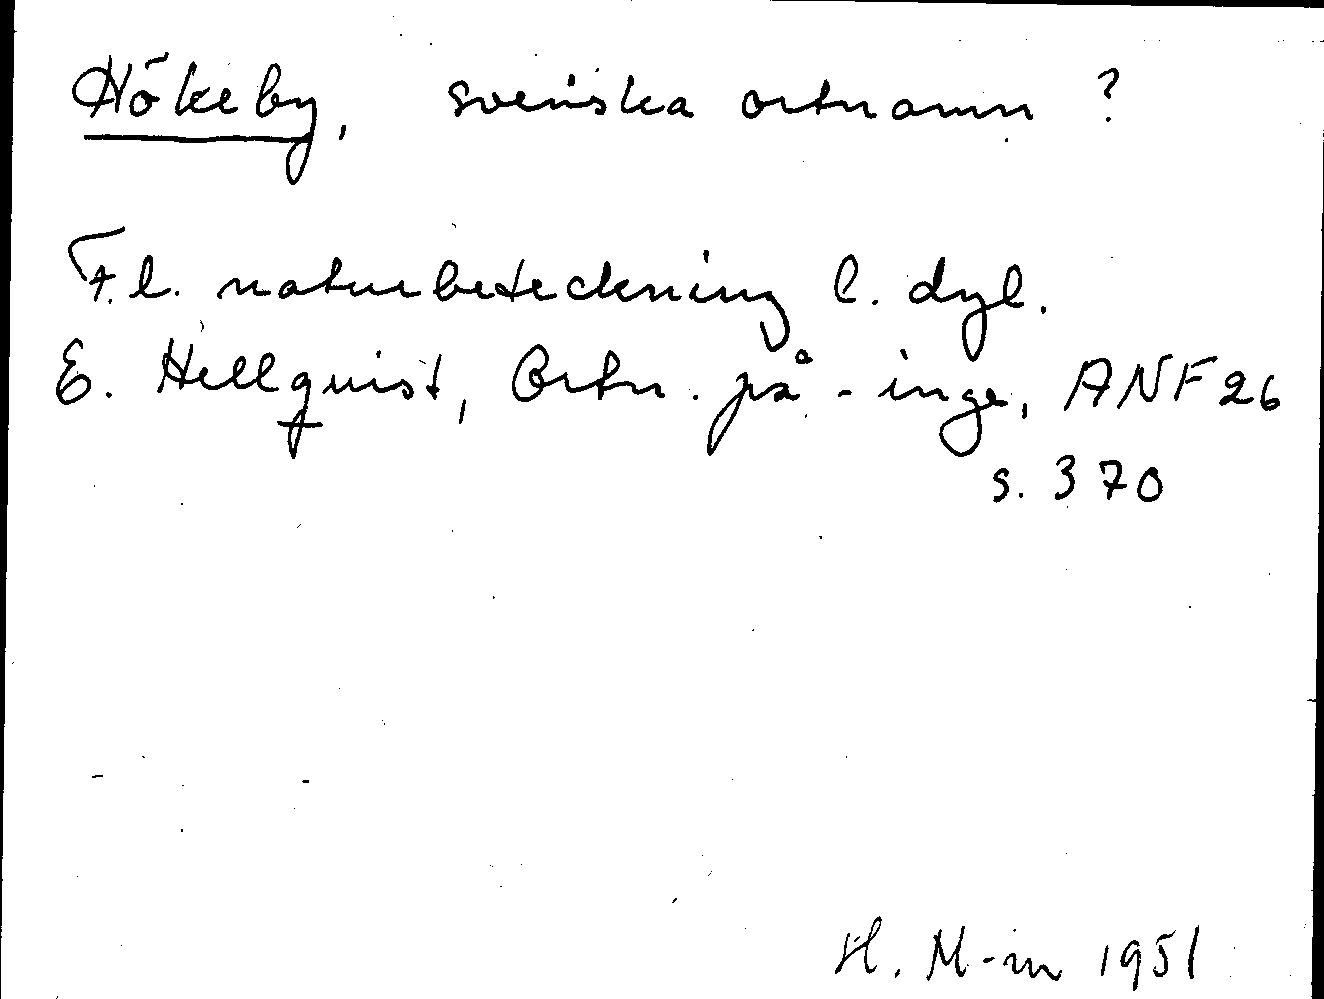 Hökeby, svenska ortnamn ?
F.l. naturbeteckning l. dyl.
E. Hellquist, Ortn. på -inge, ANF 26
s. 370
H. M-m 1951